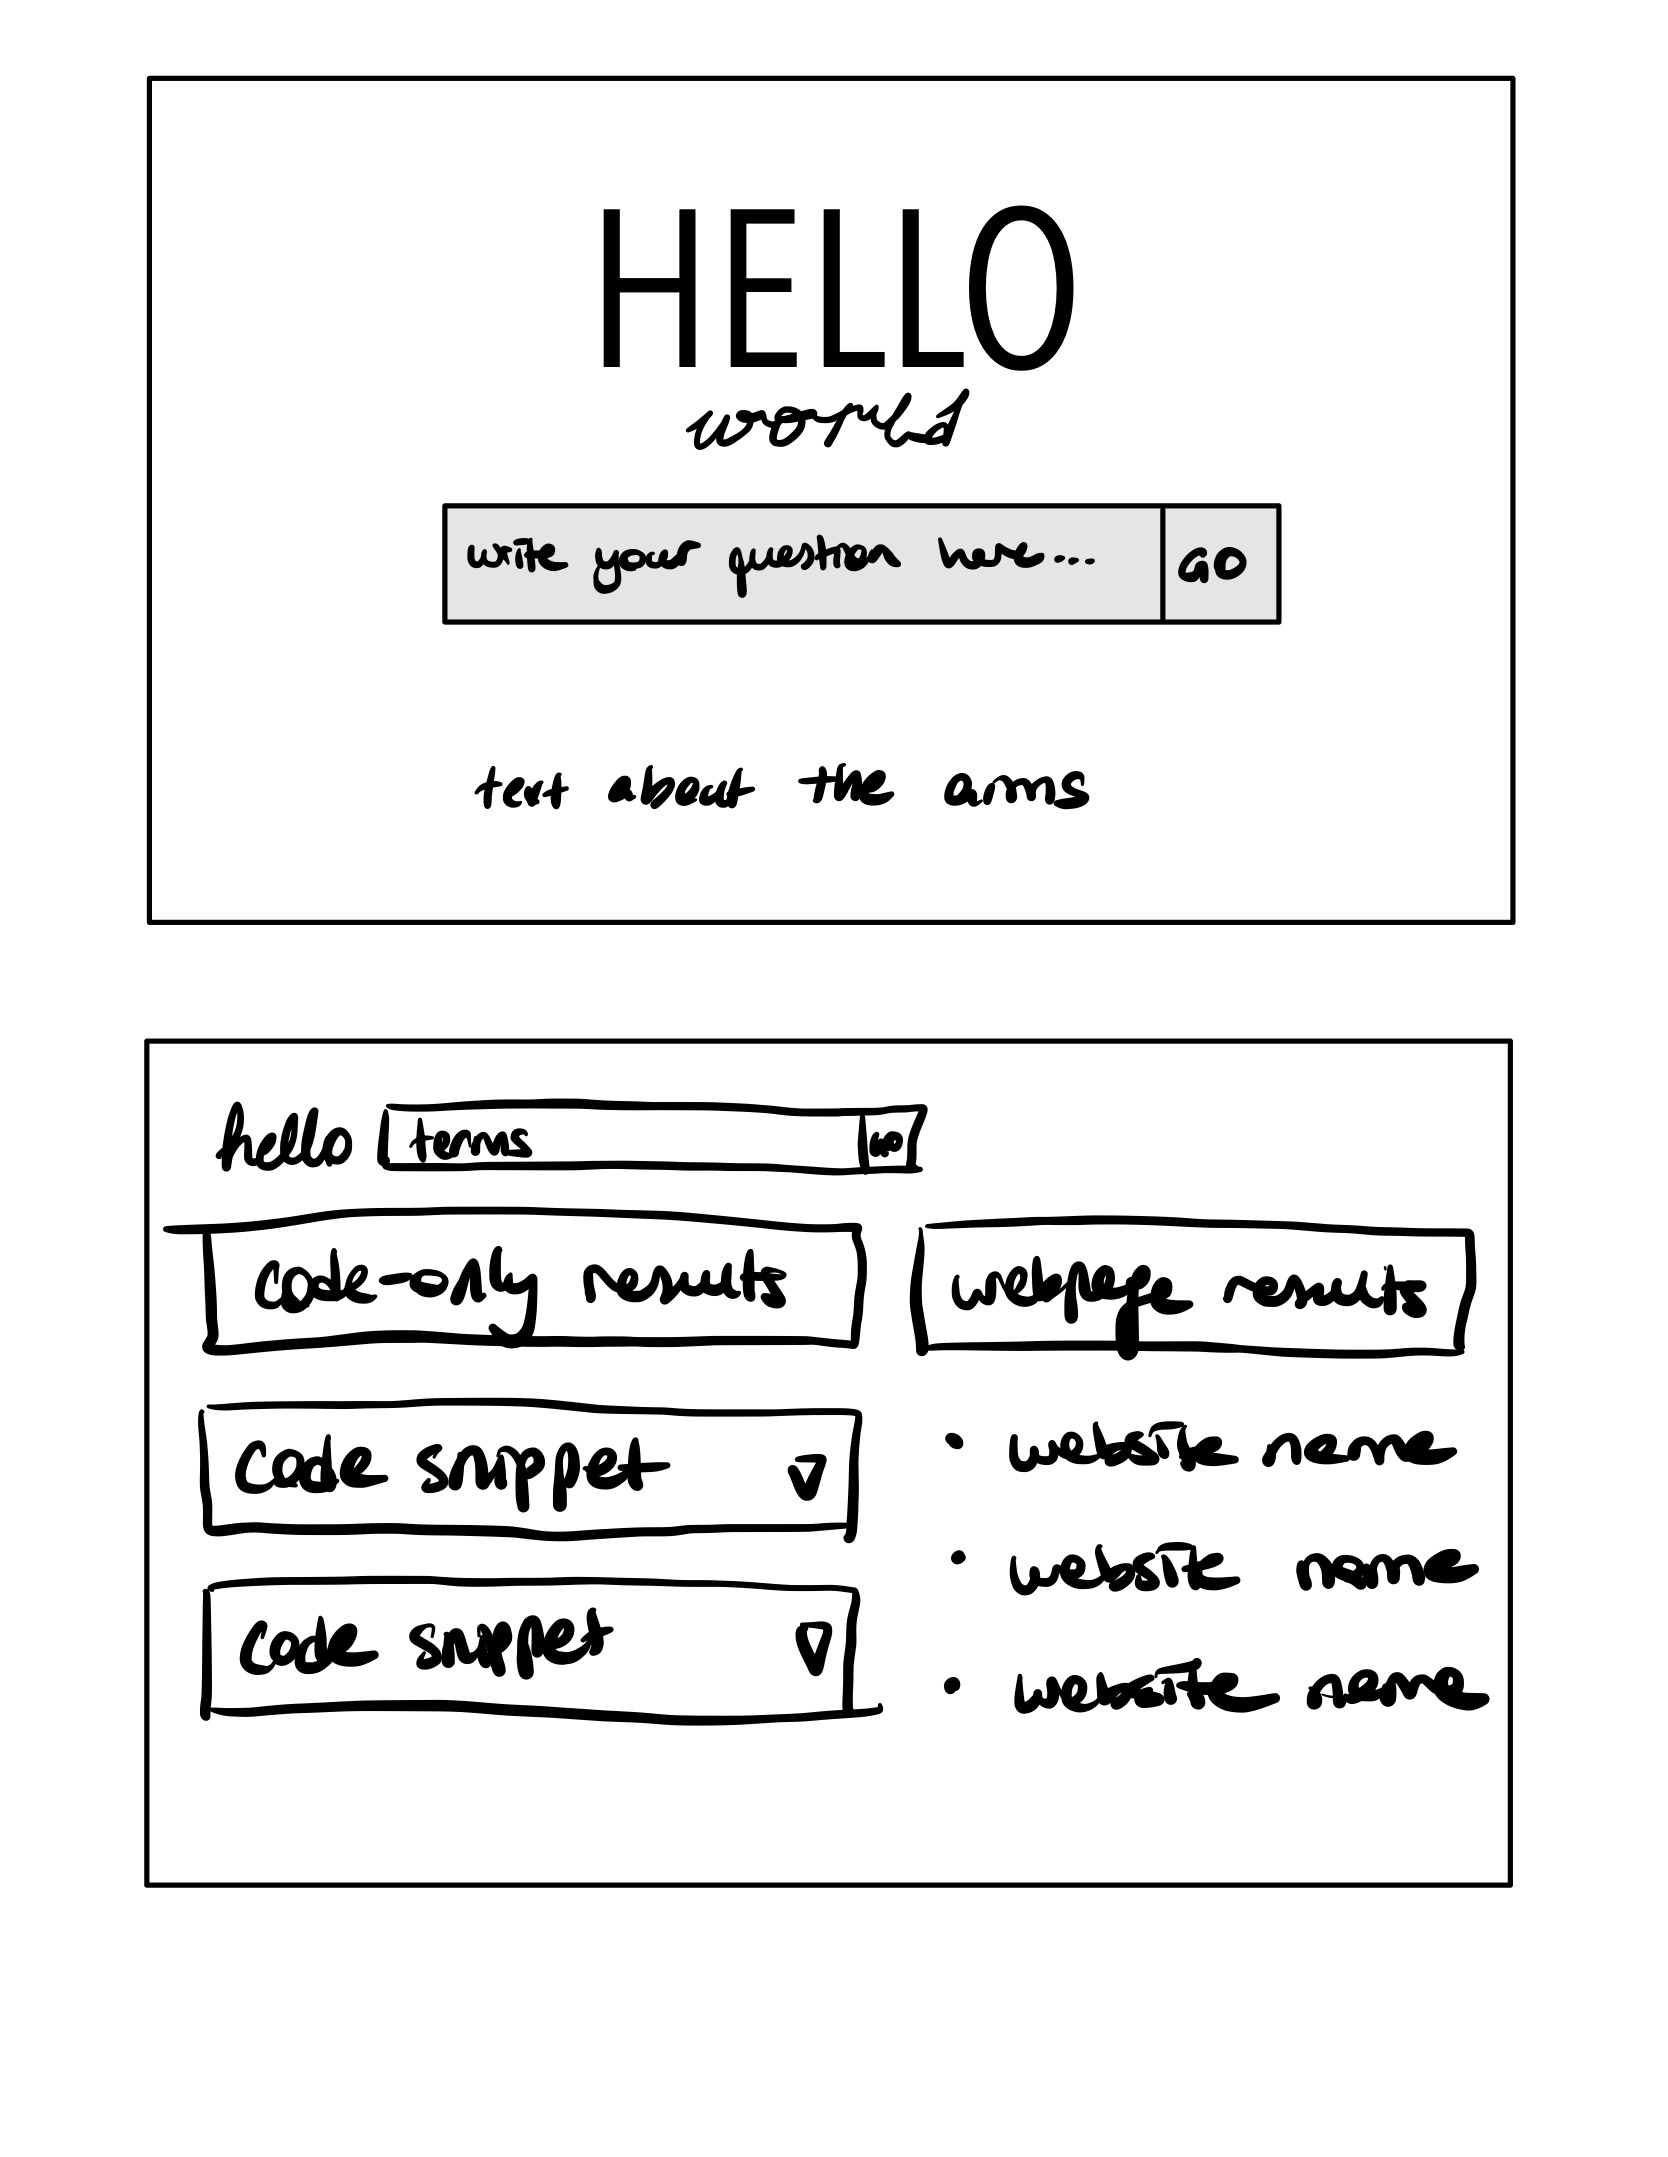 HELLO
world
write your question here... GO
text about the aims
hello terms GO
code-only results
webpage results
code snippet
website name
website name
code snippet
website name